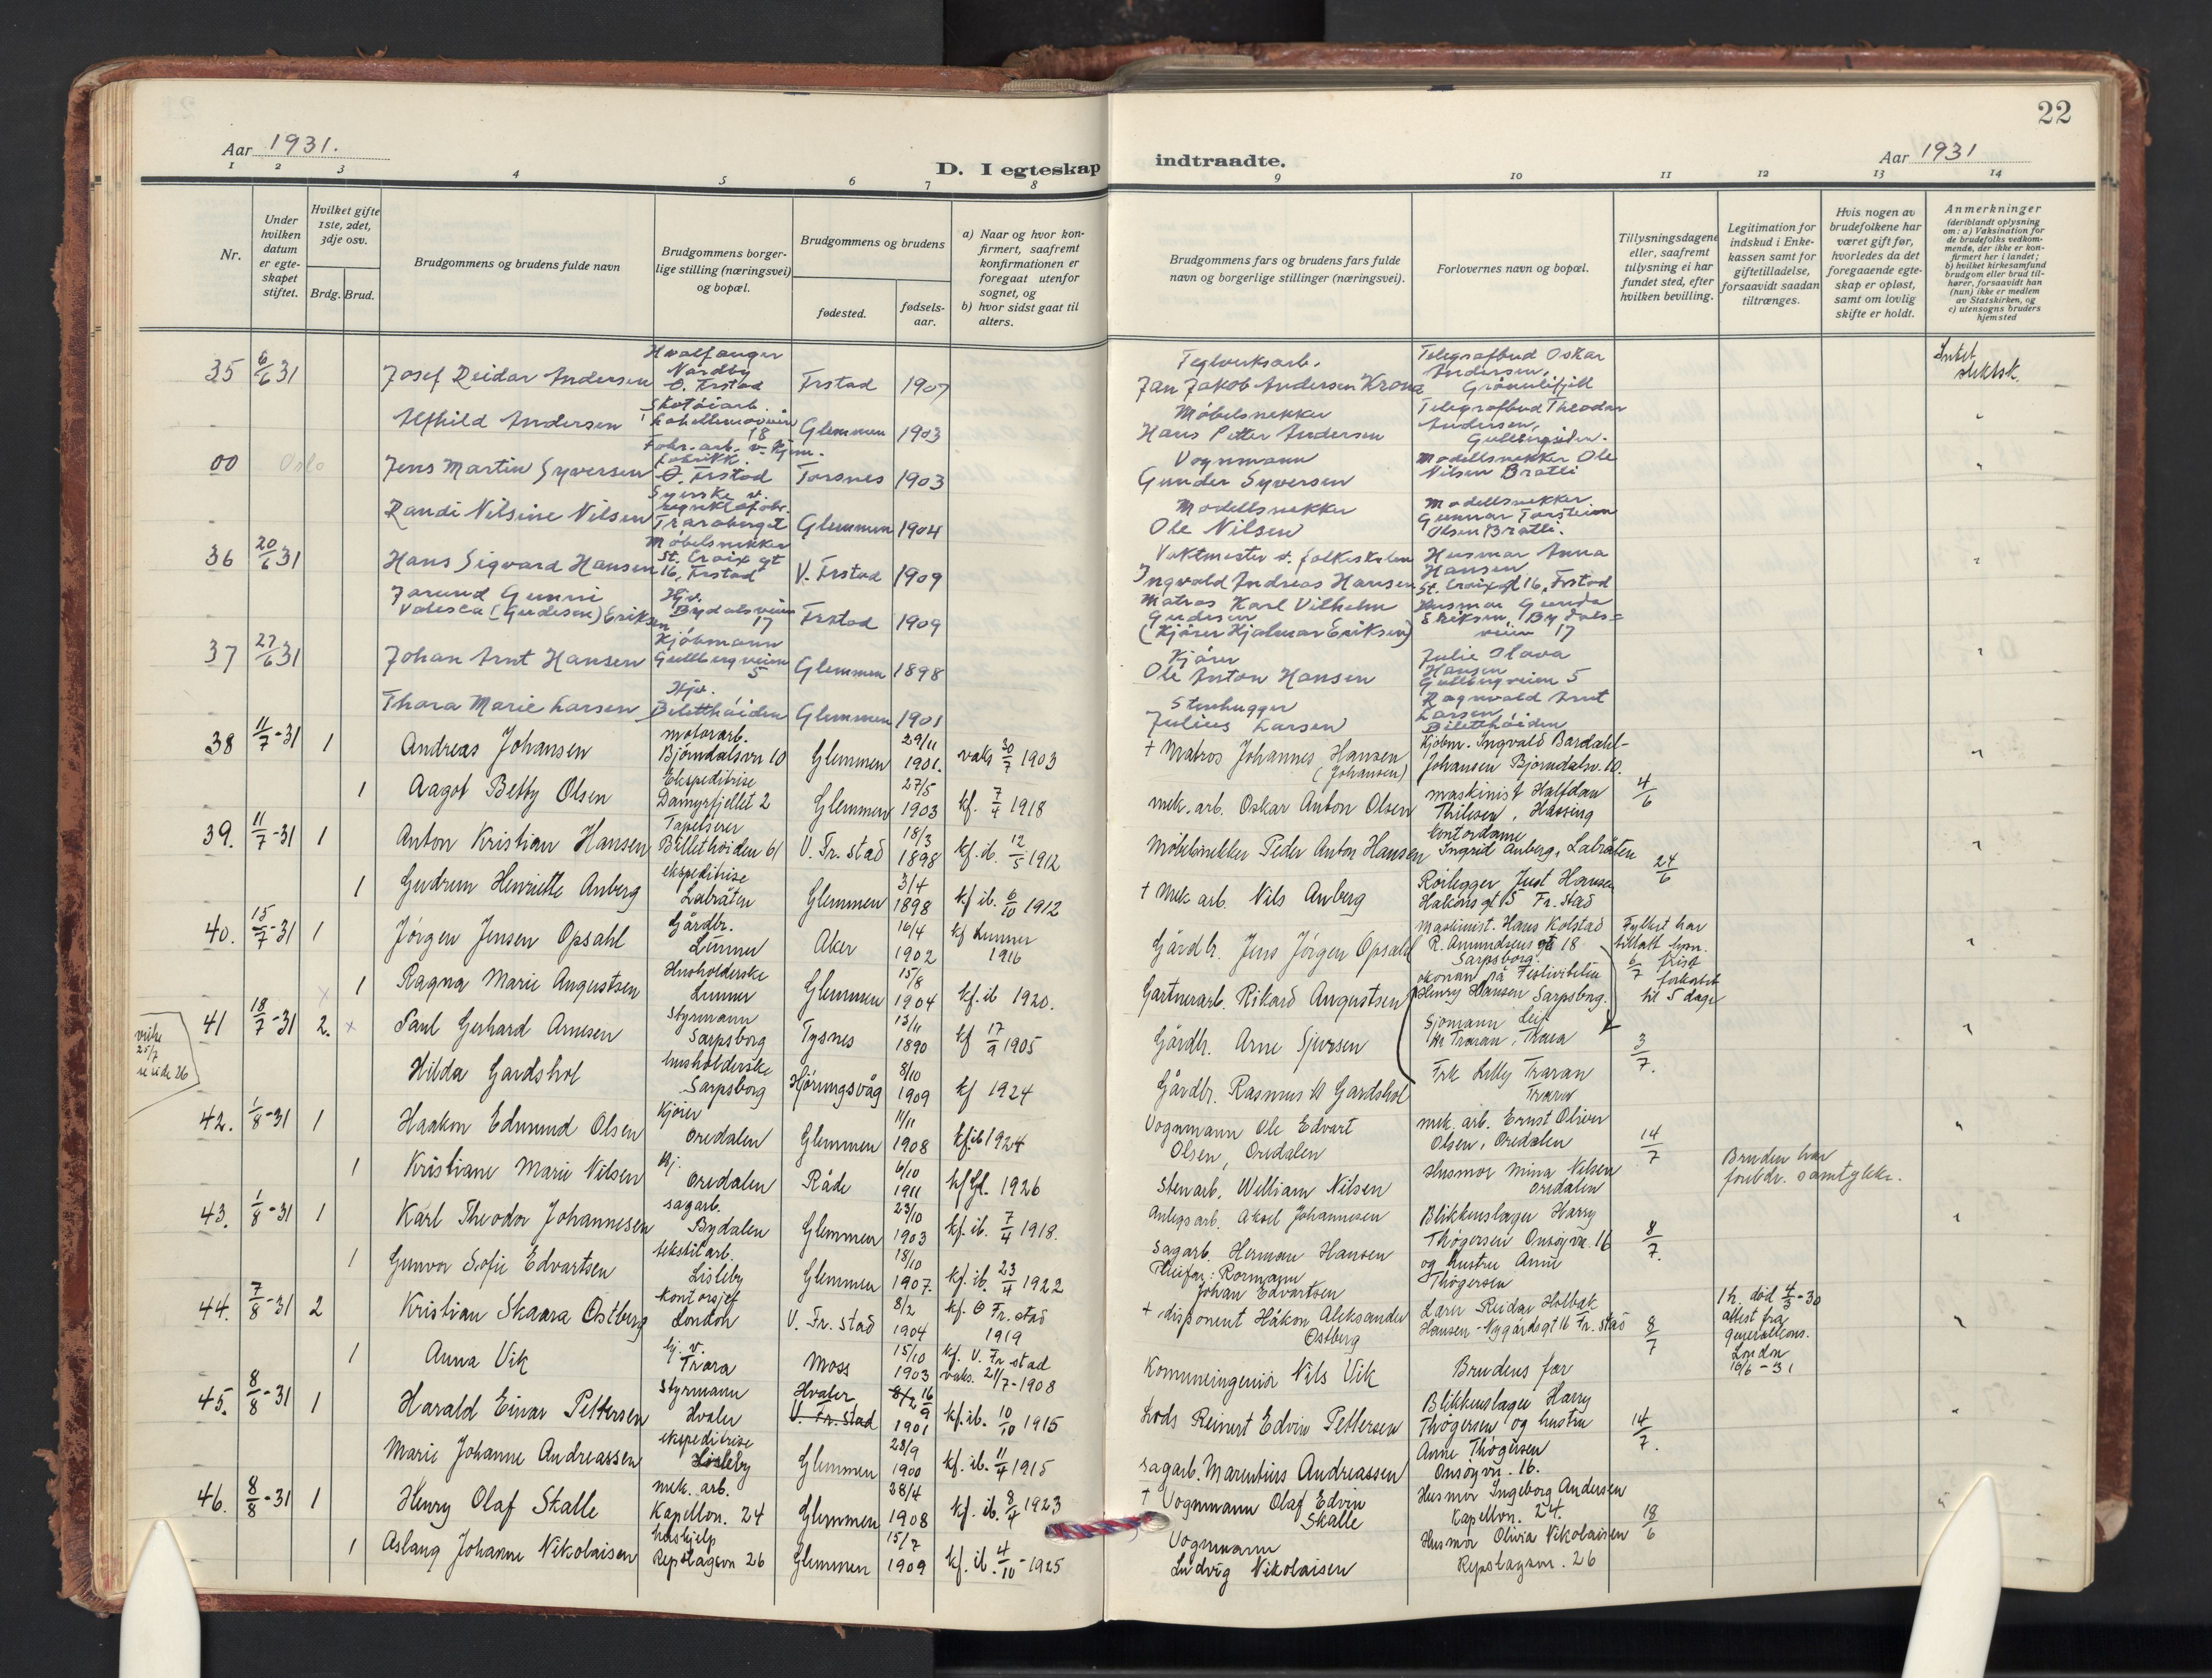 22
Aar 1931.
D. I egteskap indtraadte.
Aar 1931
1 2 3 4 5 6 7 8 9 10 11 12 13 14
Nr.
Under hvilken datum er egteskapet stiftet.
Hvilket gifte 1ste, 2det, 3dje osv.
Brdg. Brud.
Brudgommens og brudens fulde navn
Brudgommens borgerlige stilling (næringsvei) og bopæl.
Brudgommens og brudens
fødested.
fødselsaar.
a) Naar og hvor konfirmert, saafremt konfirmationen er foregaat utenfor sognet, og
b) hvor sidst gaat til alters.
Brudgommens fars og brudens fars fulde navn og borgerlige stillinger (næringsvei).
Forlovernes navn og bopæl.
Tillysningsdagene eller, saafremt tillysning ei har fundet sted, efter hvilken bevilling.
Legitimation for indskud i Enkekassen samt for giftetilladelse, forsaavidt saadan tiltrænges.
Hvis nogen av brudefolkene har været gift før, hvorledes da det foregaaende egteskap er opløst, samt om lovlig skifte er holdt.
Anmerkninger
(deriblandt oplysning om: a) Vaksination for de brudefolks vedkommende, der ikke er konfirmert her i landet;
b) hvilket kirkesamfund brudgom eller brud tilhører, forsaavidt han (hun) ikke er medlem av Statskirken, og
c) utensogns bruders hjemsted
35 6/6 31 Josef Reidar Andersen Hvalfanger Nordby Ø. Frstad Frstad 1907 Teglverksarb. Jan Jakob Andersen Krona Telegrafbud Oskar Andersen, Grønnlifjell Intet slektsk.
Alfhild Andersen Skotøiarb. Kapellensveien 18 Glemmen 1903 Møbelsnekker Hans Petter Andersen Telegrafbud Theodor Andersen, Gullbergsiden.
00 Oslo Jens Martin Syversen Fabr. arb. v. Kjem. fabrikk. Ø. Frstad Torsnes 1903 Vognmann Gunder Syversen Modellsnekker Ole Nilsen Bratli
Randi Nilsine Nilsen Syerske v. Traraberget Glemmen 1904 Modellsnekker Ole Nilsen Modellsnekker Gunnar Torstein Olsen Bratli.
36 20/6 31 Hans Sigvard Hansen Møbelsnekker St. Croix gt 16, Frstad V. Frstad 1909 Vaktmester v. folkeskolen Ingvald Andreas Hansen Husmor Anna Hansen St. Croix gt 16, Frstad
Jorund Gunni Valesca (Gudesen) Eriksen Hjv. Bydalsveien 17 Frstad 1909 Matros Karl Vilhelm Gudesen (Kjører Hjalmar Eriksen) Husmor Gunda Eriksen, Bydalsveien 17
37 27/6 31 Johan Arnt Hansen Kjøbmann Gullbergveien 5 Glemmen 1898 Kjører Ole Anton Hansen Julie Olava Hansen Gullbergveien 5
Thora Marie Larsen Hjv. Biletthøiden Glemmen 1901 Stenhugger Julius Larsen Ragnvald Arnt Larsen Biletthøiden
38 11/7-31 1 Andreas Johansen motorarb. Bjørndalsvn 10 Glemmen 29/11 1901. vaks 30/7 1903 + Matros Johannes Hansen (Johansen) Kjøbm. Ingvald Bardahl-Johansen Bjørndalsv. 10.
1 Aagot Betty Olsen Ekspeditrise Damyrfjellet 2 Glemmen 27/5 1903 kf. 7/4 1918 mek. arb. Oskar Anton Olsen maskinist Halfdan Thilesen, Hassing 4/6
39. 11/7-31 1 Anton Kristian Hansen Tapetserer Billethøiden 61 V. Fr.stad 18/3 1898 kf. ib. 12/5 1912 Møbelsnekker Peder Anton Hansen kontordame Ingrid Anberg, Labråten 24/6
1 Gudrun Henriette Anberg ekspeditrise Labråten Glemmen 3/4 1898 kf ib. 6/10 1912 + Mek arb. Nils Anberg Rørlegger Just Hansen Hakons gt 5 Fr.stad
40. 15/7-31 1 Jørgen Jensen Opsahl Gårdbr. Lunner Aker 16/4 1902 kf Lunner 1916 Gårdbr. Jens Jørgen Opsahl Maskinist. Hans Kolstad R. Amundsens gt 18 Sarpsborg. Fylket har tillatt lysn. frist forkortet til 5 dager 6/7
1 Ragna Marie Augustsen Husholderske Lunner Glemmen 15/8 1904 kf. ib 1920. Gartnerarb. Rikard Augustsen økonom på Festiviteten Henry Hansen Sarpsborg.
41 18/7-31 2. x Paul Gerhard Arnesen Styrmann Sarpsborg Tysnes 13/11 1890 kf 17/9 1905 Gårdbr. Arne Sjursen Sjømann Leif Traran, Trara 3/7.
25/7 se side 26
Hilda Gardshol husholderske Sarpsborg Hjørungsvåg 8/10 1909 kf 1924 Gårdbr. Rasmus A Gardshol Frk Lilly Traran Trara
42. 1/8-31 1 Haakon Edmund Olsen Kjører Oredalen Glemmen 11/11 1908 kf. ib 1924 Vognmann Ole Edvart Olsen, Oredalen mek. arb. Ernst Oliver Olsen, Oredalen 14/7
1 Kristiane Marie Nilsen hj. Oredalen Råde 6/10 1911 kf Gl. 1926 Stenarb. William Nilsen Husmor Mina Nilsen Oredalen Bruden har foreldr. samtykke.
43. 1/8-31 1 Karl Theodor Johannesen sagarb. Bydalen Glemmen 23/10 1903 kf. ib. 7/4 1918. Anlegsarb. Aksel Johannesen Blikkenslager Harry Thøgersen Onsøyvn. 16 8/7.
1 Gunvor Sofie Edvartsen tekstilarb. Lisleby Glemmen 18/10 1907. kf. ib. 23/4 1922 Sagarb. Herman Hansen Pleiefar: Rørmann Johan Edvartsen og hustru Anne Thøgersen
44. 7/8-31 2 Kristian Skaara Østberg kontorsjef London V. Fr.stad 8/2 1904 kf. Ø Fr.stad 1919 + disponent Håkon Aleksander Østberg Lærer Reidar Holbæk Hansen - Nygårdsgt 16 Fr.stad 8/7 1 h. død 4/3-30 attest fra generalkons. London 16/6-31
1 Anna Vik hj. v. Trara Moss 15/10 1903 kf. V. Fr.stad vaks. 21/7-1908 Kommuneingeniør Nils Vik Brudens far
45. 8/8-31 1 Harald Einar Pettersen Styrmann Hvaler Hvaler V. Fr.stad 8/2 16/9 1901 kf. ib. 10/10 1915 Lods Reinert Edvin Pettersen Blikkenslager Harry Thøgersen og hustru Anne Thøgersen Onsøyvn. 16. 14/7.
Marie Johanne Andreassen ekspeditrise Lisleby Glemmen 28/9 1900 kf. ib. 11/4 1915 sagarb. Marentius Andreassen
46. 8/8-31 1 Henry Olaf Skalle mek. arb. Kapellvn. 24 Glemmen 28/4 1908 kf. ib. 8/4 1923 + Vognmann Olaf Edvin Skalle Husmor Ingeborg Andersen Kapellvn. 24. 18/6
1 Aslaug Johanne Nikolaisen hushjelp Repslagervn 26 Glemmen 15/7 1909 kf. ib. 4/10-1925 Vognmann Ludvig Nikolaisen Husmor Olivia Nikolaisen Repslagervn. 26